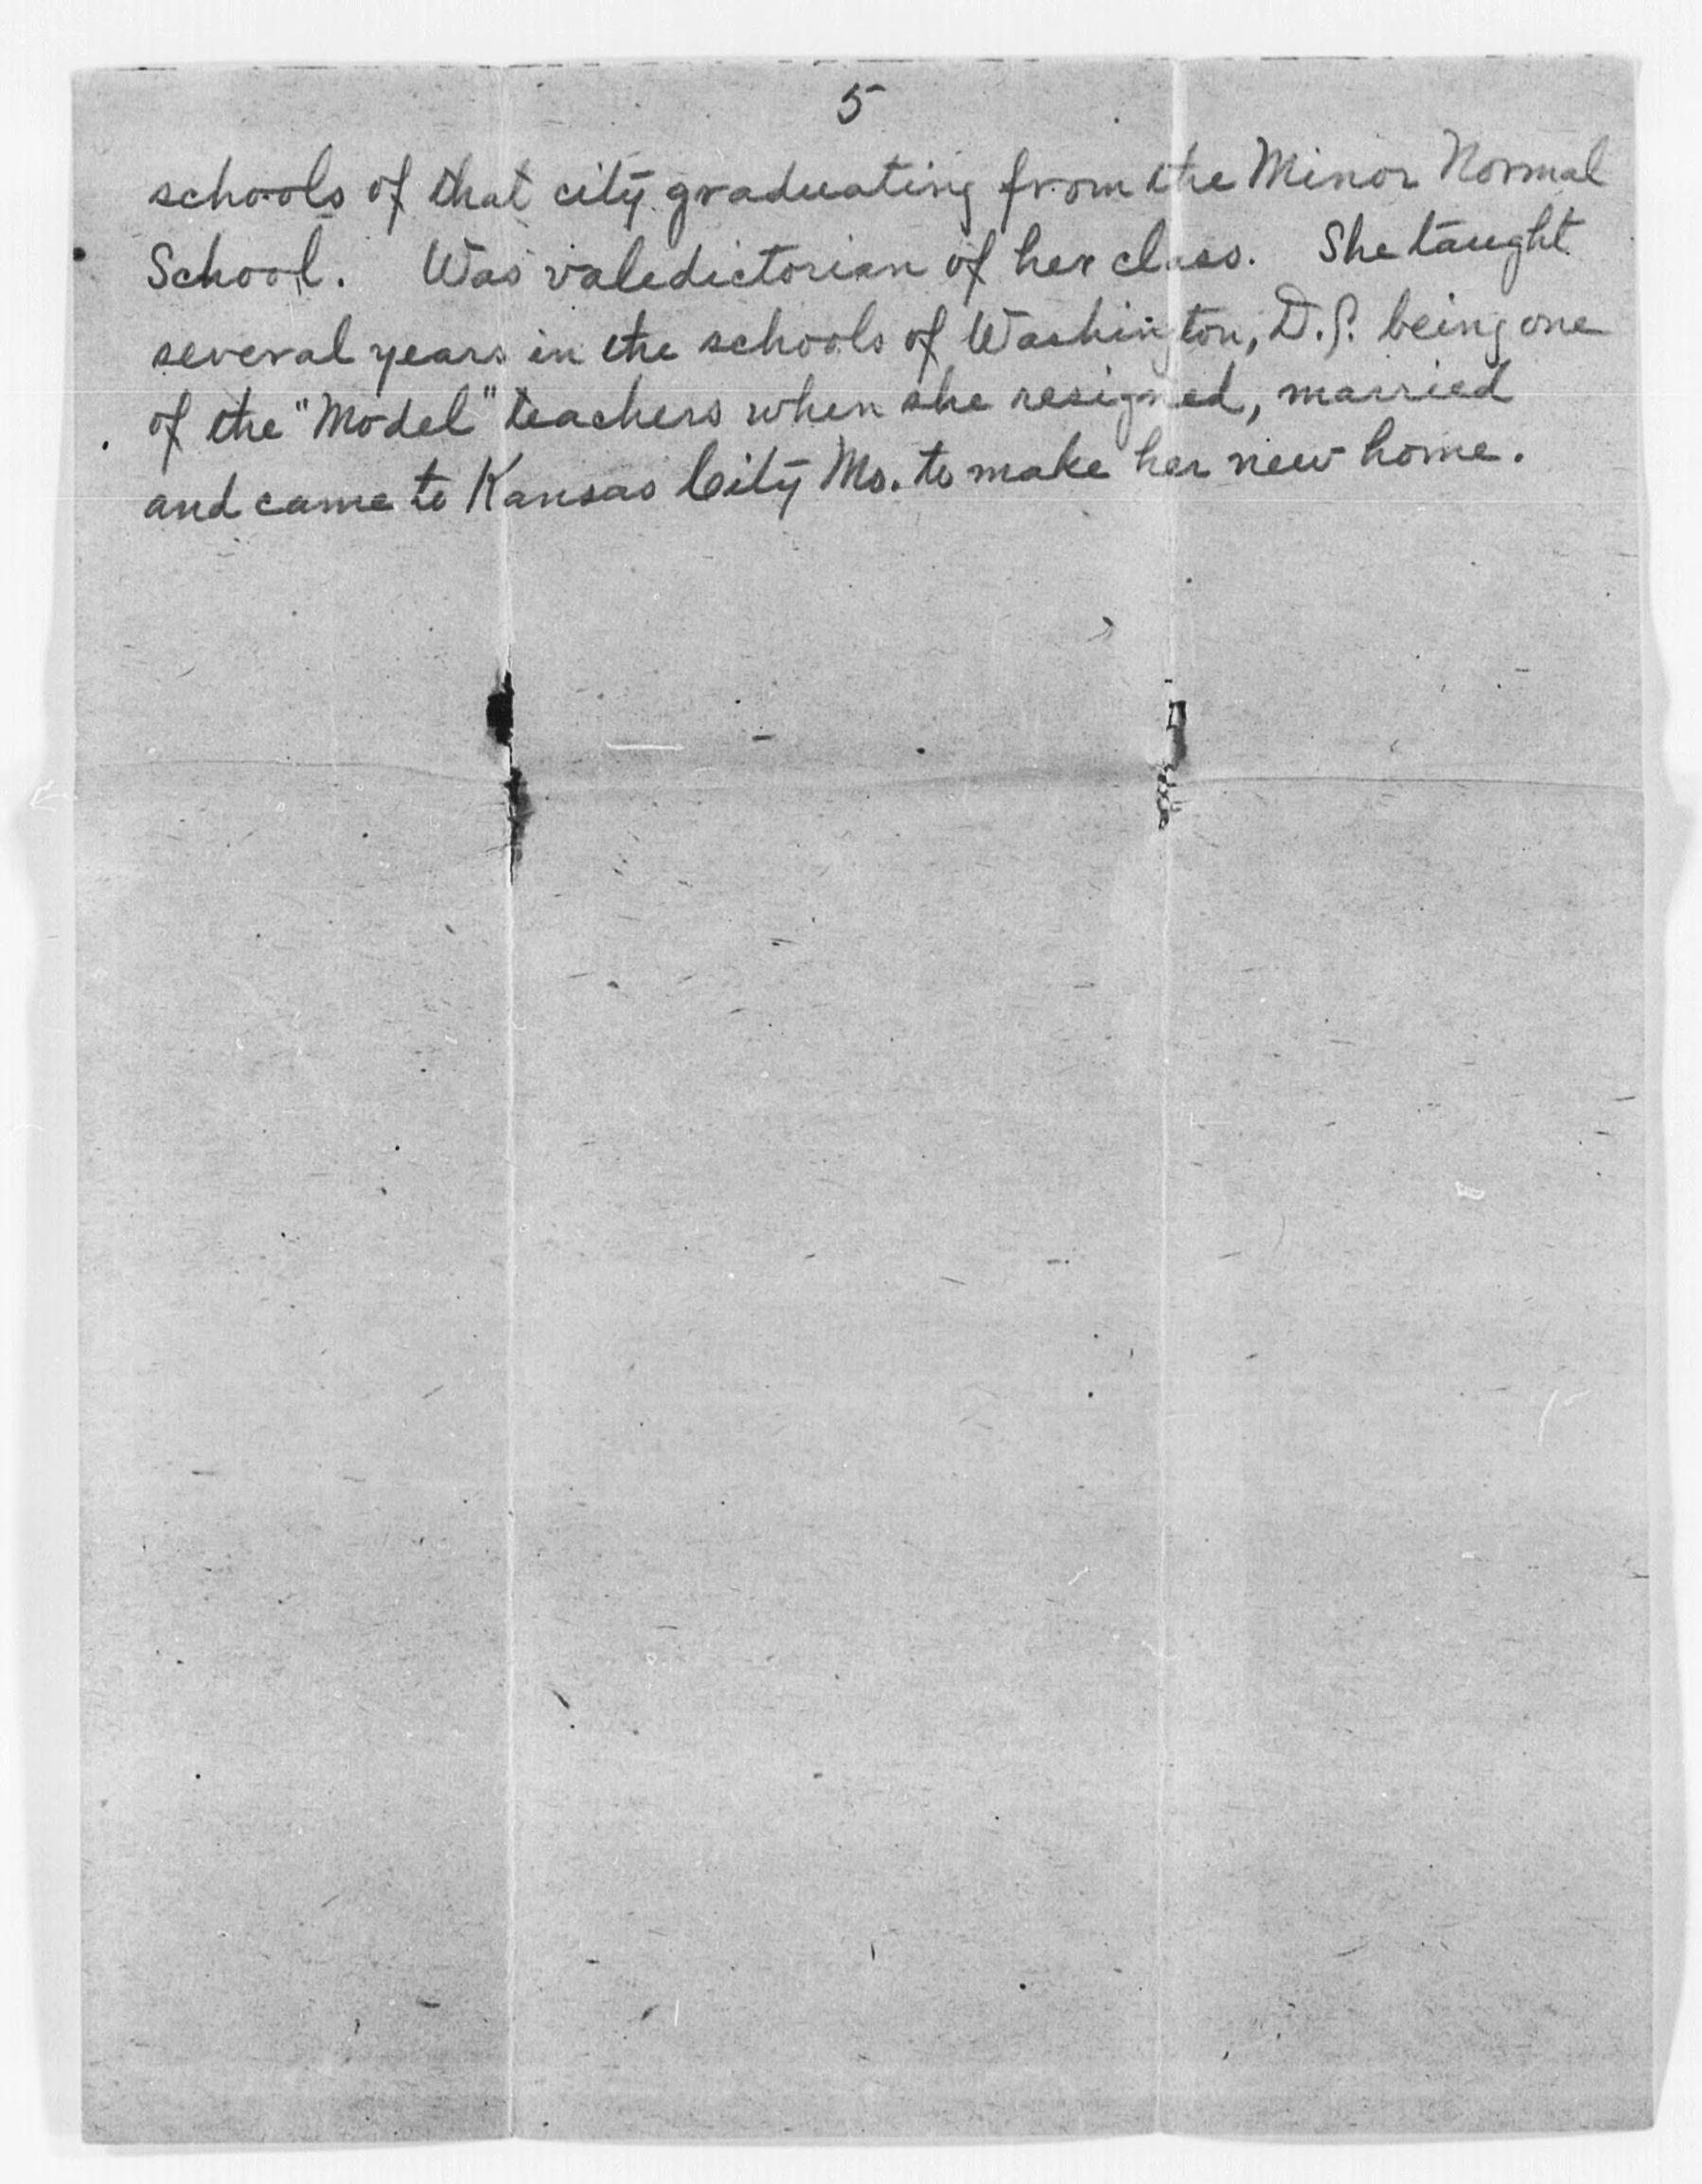 5
schools of that city graduating from the Minor Normal
School. Was valedictorian of her class. She taught
several years in the schools of Washington, D.C. being one
of the "Model" teachers when she resigned, married
and came to Kansas City Mo. to make her new home.